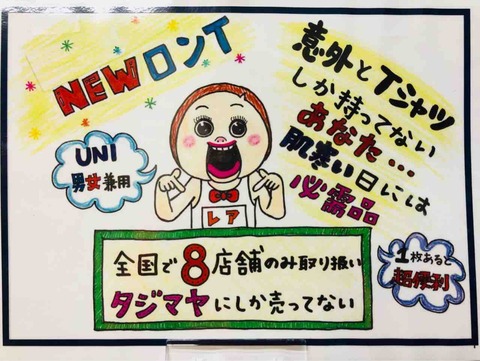 NEWロンT
意外とTシャツ
しか持ってない
あなた...
肌寒い日には
必需品
UNI
男女兼用
レア
全国で8店舗のみ取り扱い
タジマヤにしか売ってない
1枚あると
超便利